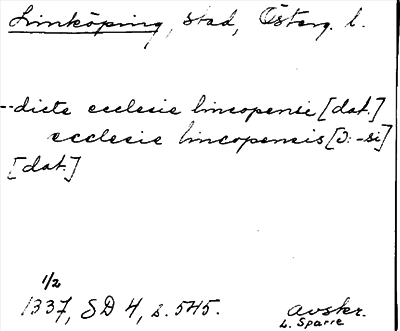 Linköping, stad, Österg. l.
--dicte ecclesie lincopensi [dat.]
ecclesie lincopensis [ɔ: -si]
[dat.]
1/2
1337, SD 4, s. 545.
avskr.
L. Sparre